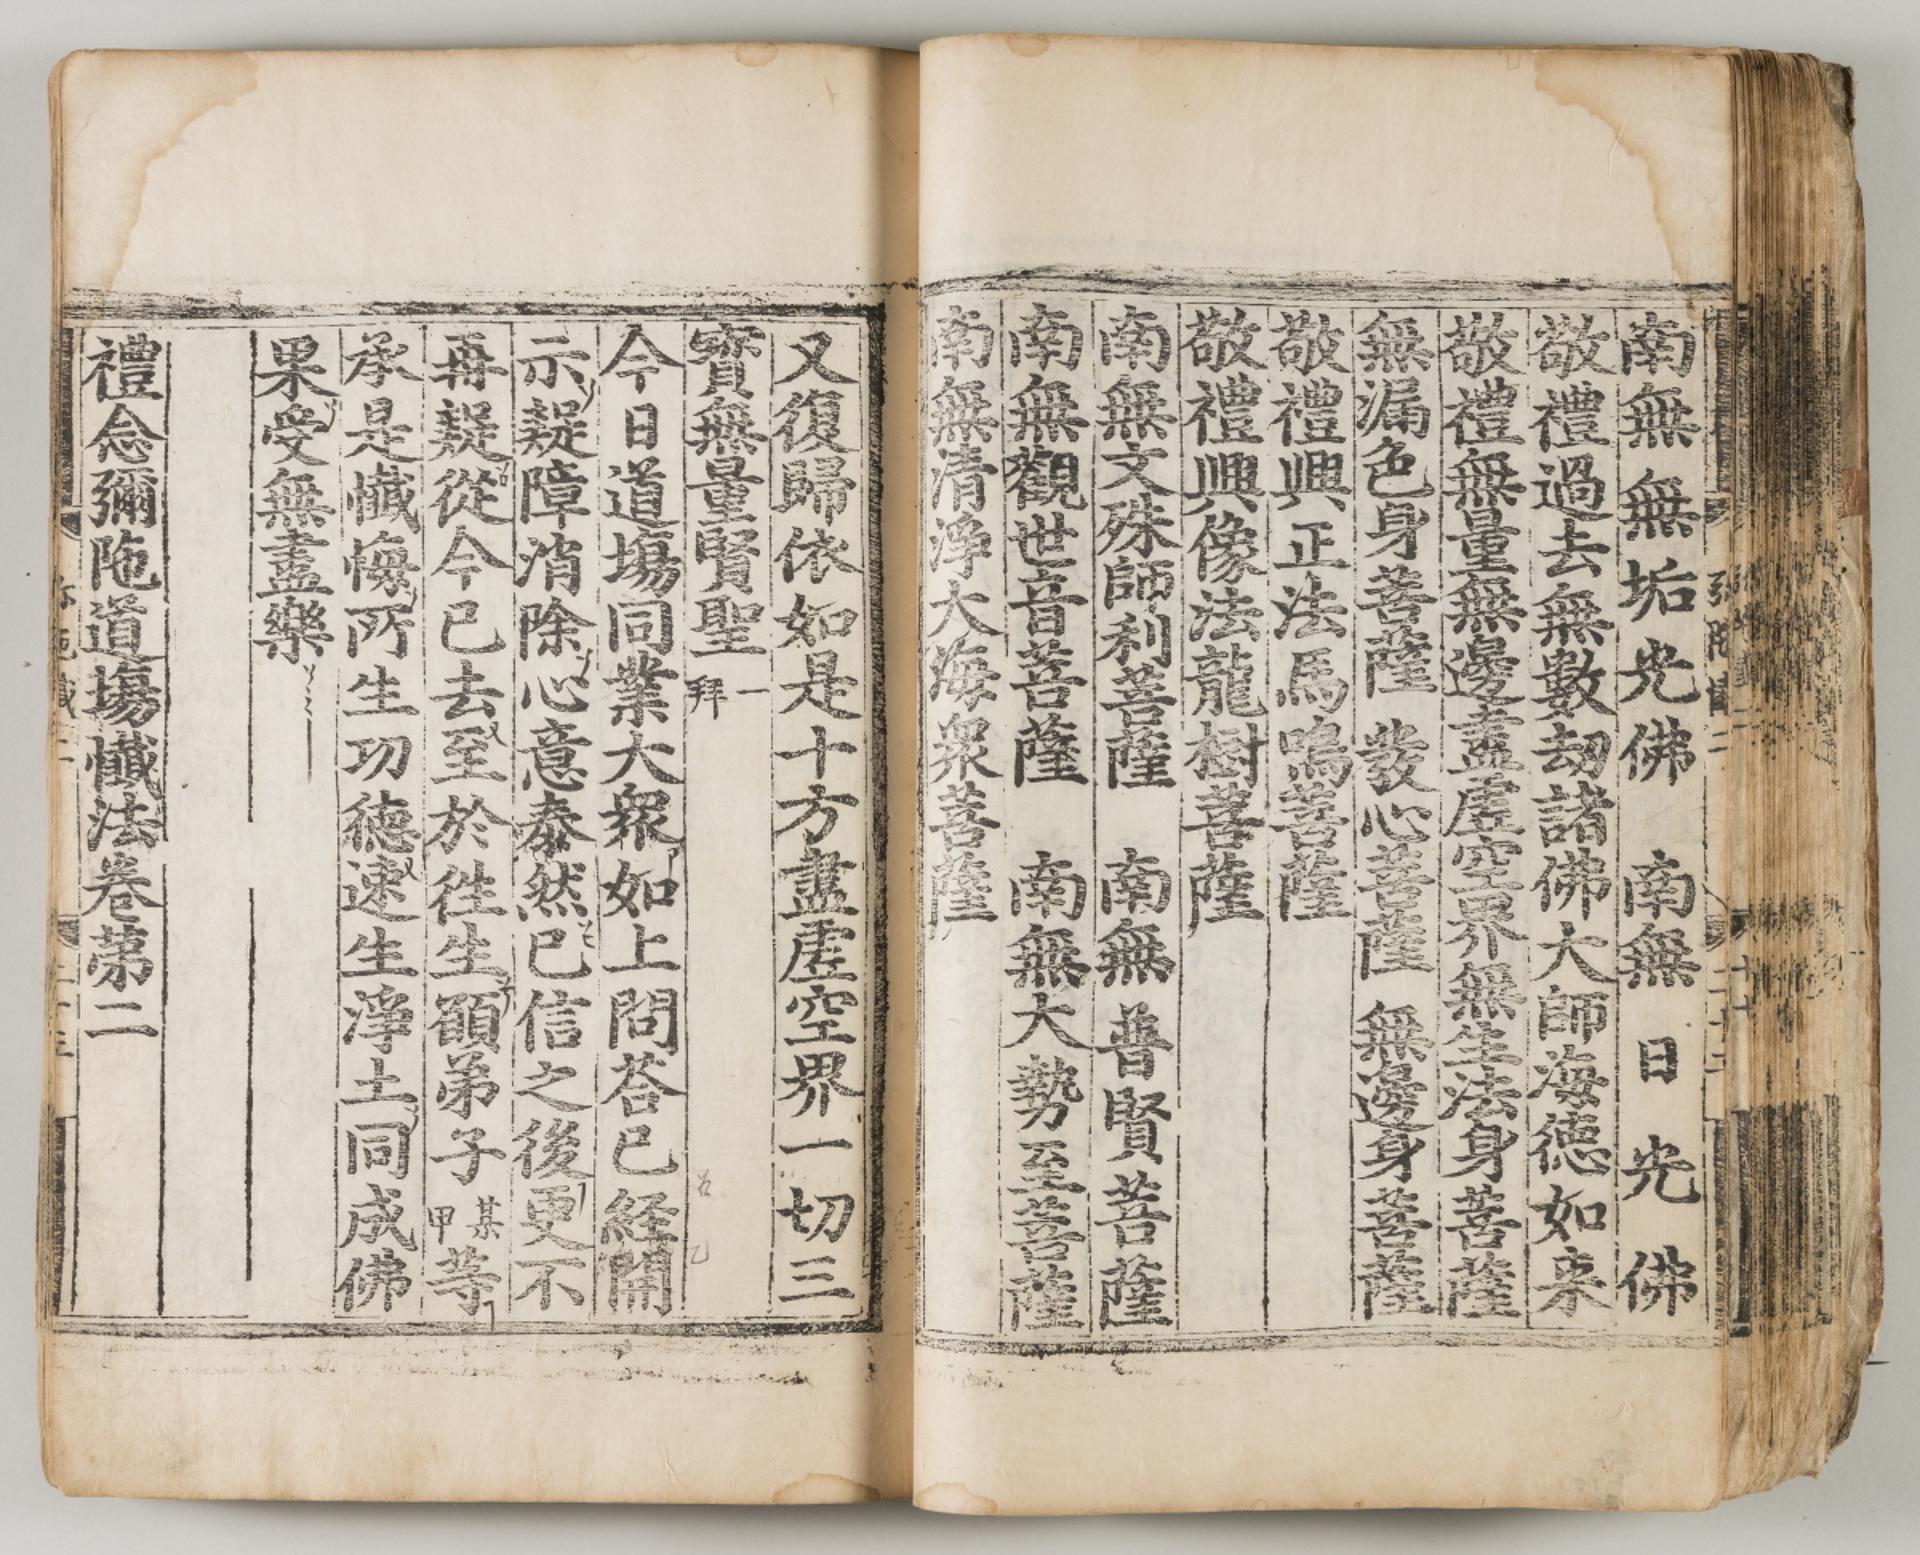 南無無垢光佛　南無日光佛
敬禮過去無數劫諸佛大師海德如来
敬禮無量無邊盡虛空界無生法身菩薩
無漏色身菩薩　發心菩薩　無邊身菩薩
敬禮興正法馬鳴菩薩
敬禮興像法龍樹菩薩
南無文殊師利菩薩　南無普賢菩薩
南無觀世音菩薩　南無大勢至菩薩
南無清淨大海衆菩薩
又復歸依如是十方盡虛空界一切三
寶無量賢聖 一拜
今日道場同業大衆如上問荅已経開
示疑障消除心意泰然已信之後更不
再疑從今已去至於徃生願弟子某甲等
承是懺悔所生功德速生淨土同成佛
果受無盡樂
禮念彌陁道場懺法卷第二